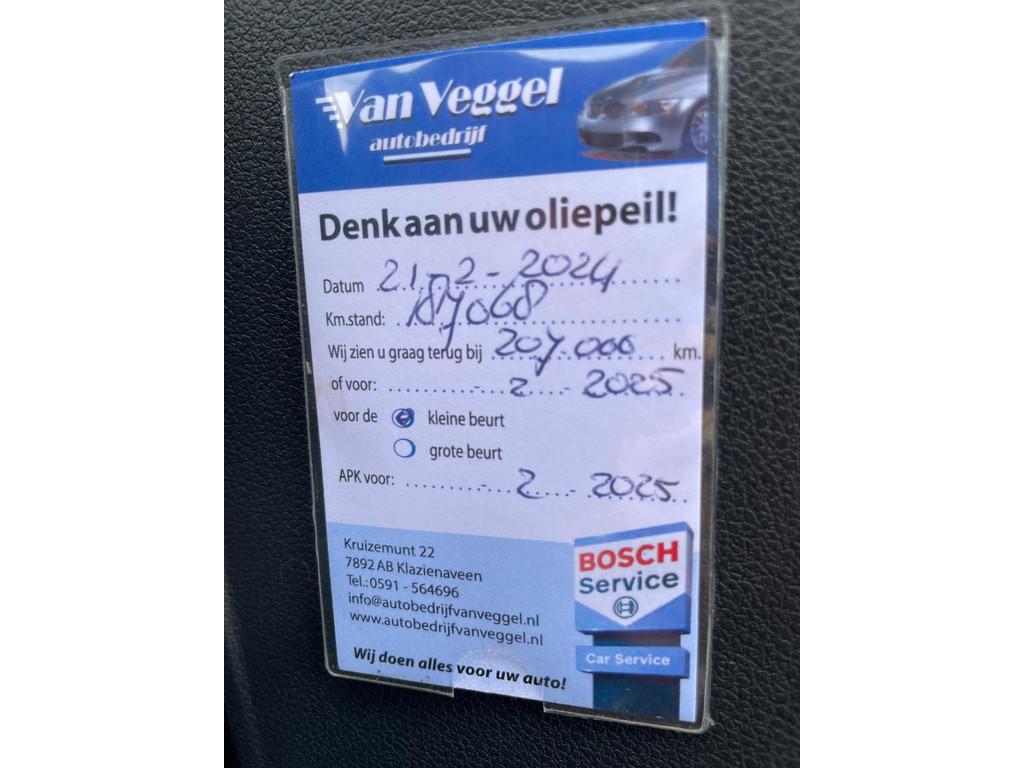 Van Veggel
autobedrijf
Denk aan uw oliepeil!
Datum 21-2-2024
Km.stand: 187068
Wij zien u graag terug bij 207.000 km.
of voor: - 2 - 2025
voor de kleine beurt
grote beurt
APK voor: - 2 - 2025
Kruizemunt 22
7892 AB Klazienaveen
Tel.: 0591 - 564696
info@autobedrijfvanveggel.nl
www.autobedrijfvanveggel.nl
Wij doen alles voor uw auto!
BOSCH
Service
Car Service